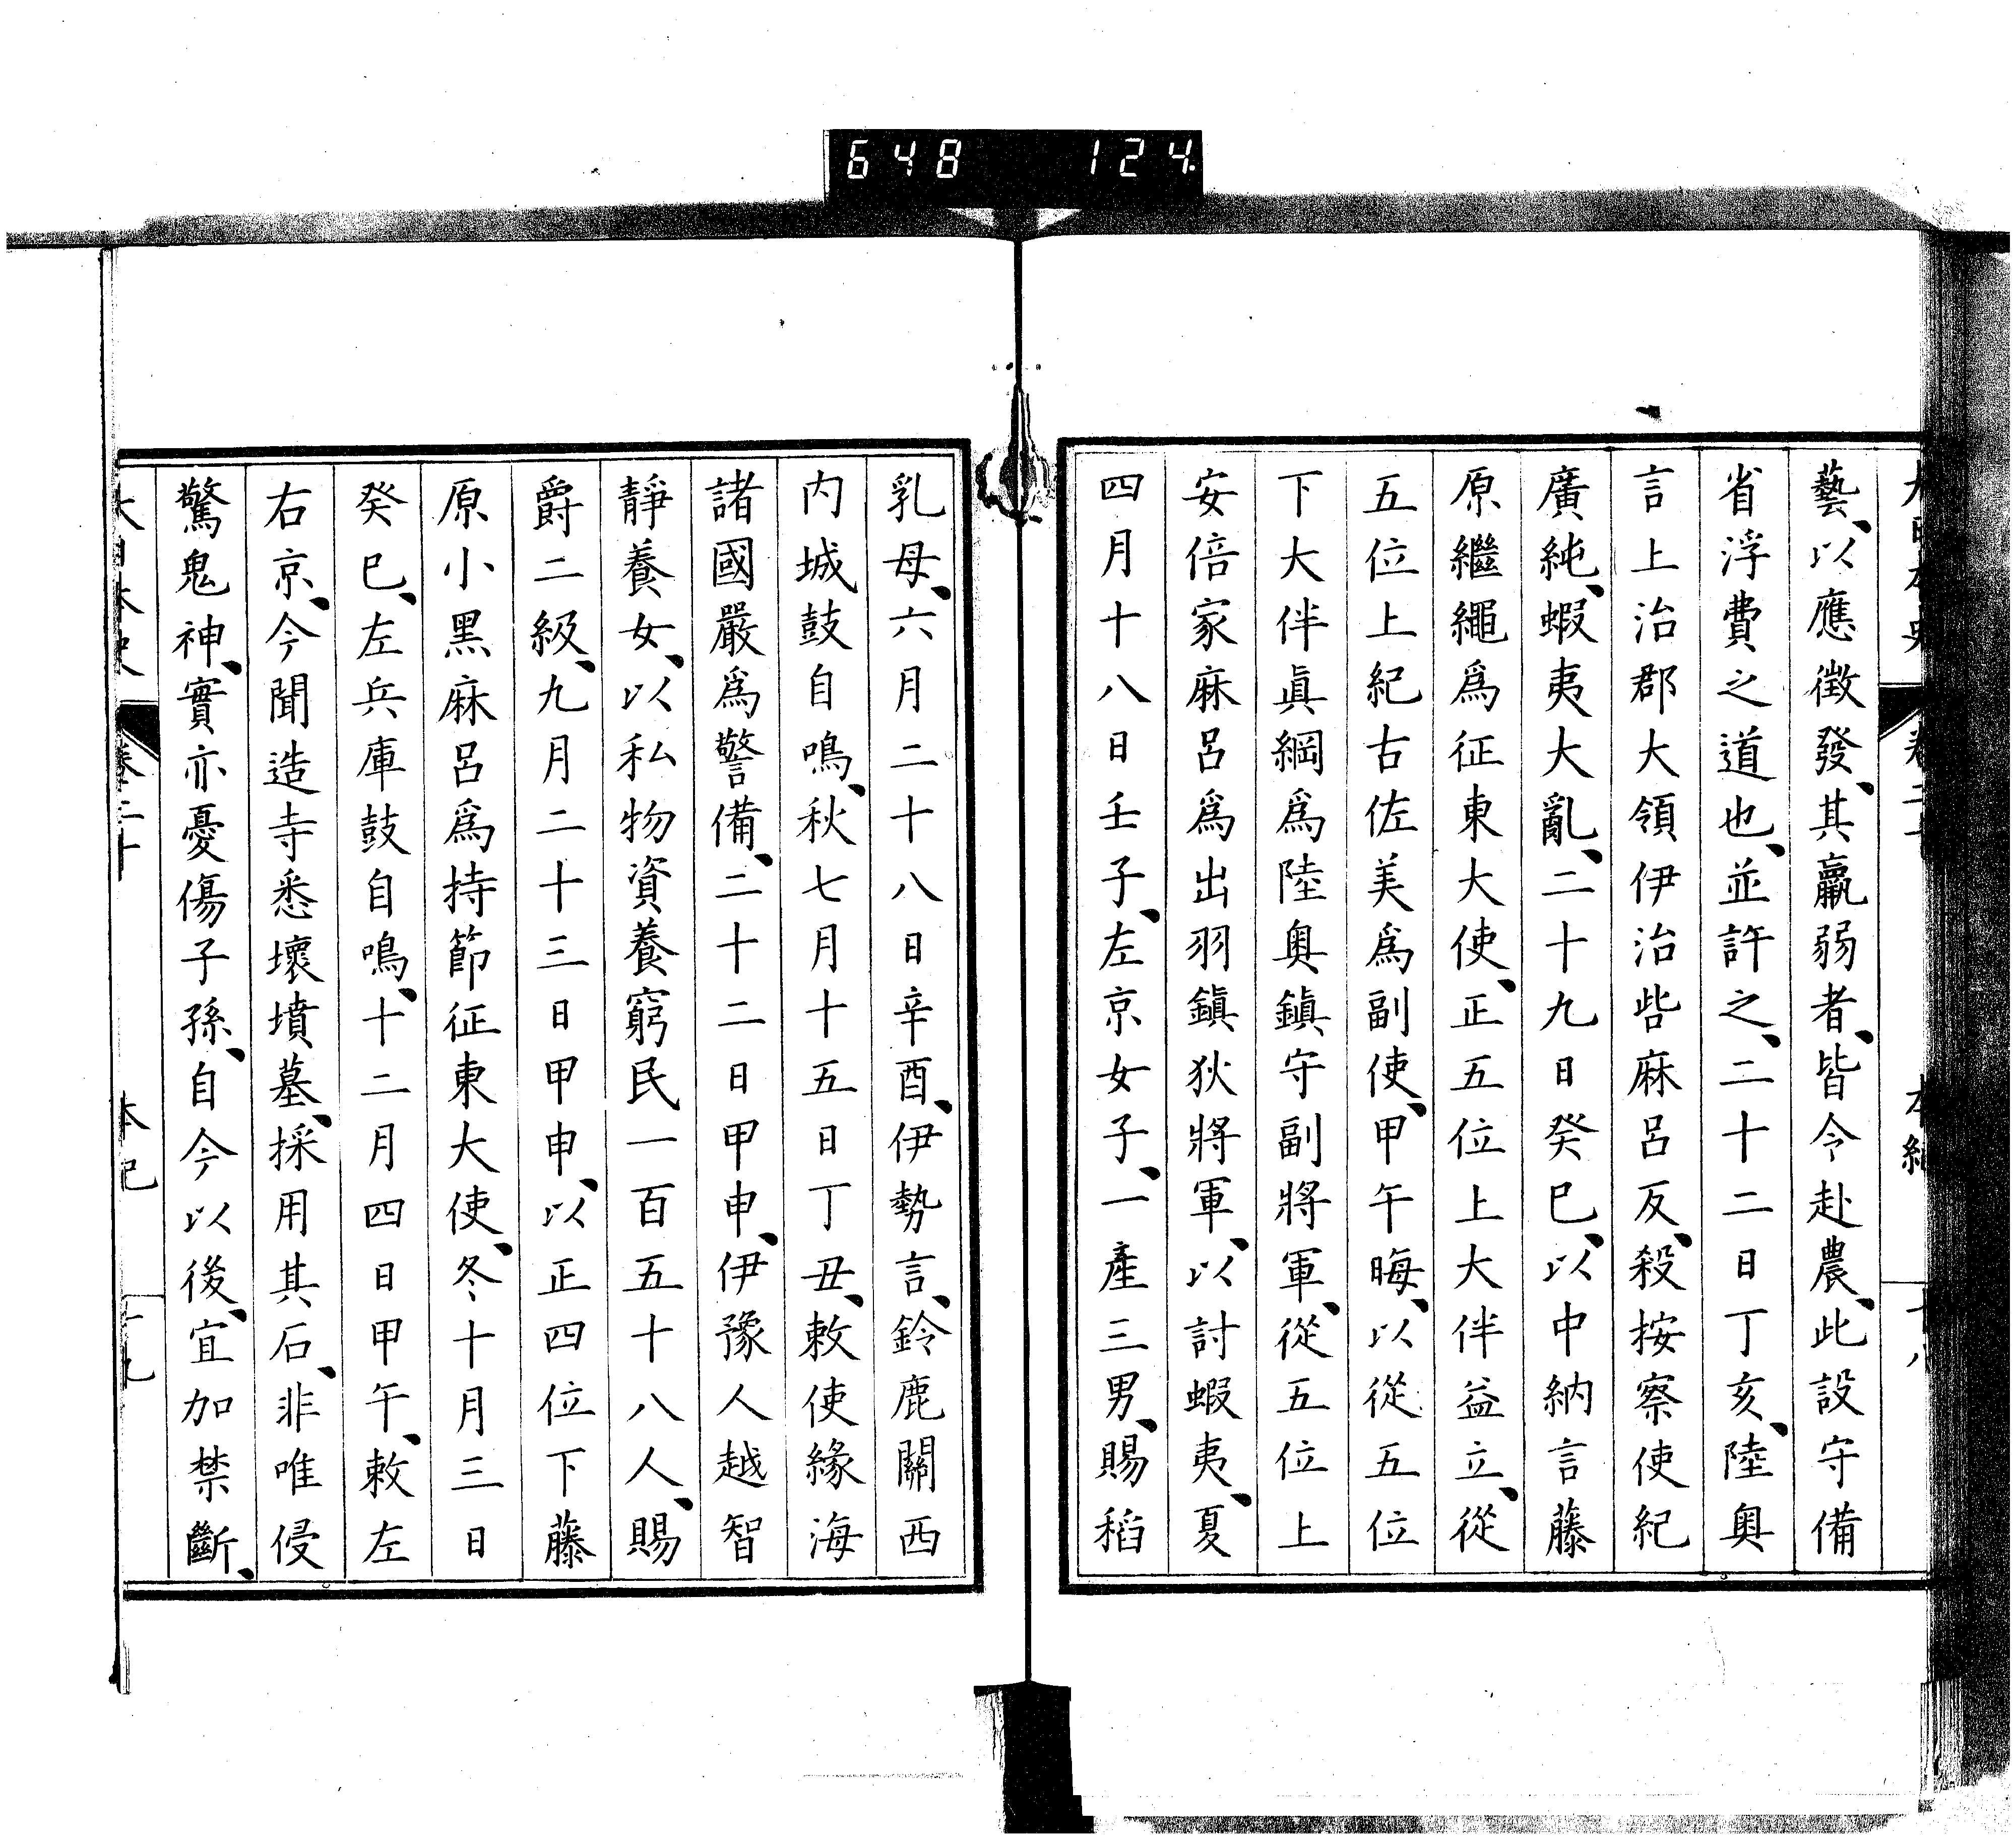 648 124
藝、以應徴發、其羸弱者、皆令赴農、此設守備
省浮費之道也、並許之、二十二日丁亥、陸奥
言上治郡大領伊治呰麻呂反、殺按察使紀
廣純、蝦夷大亂、二十九日癸巳、以中納言藤
原繼繩爲征東大使、正五位上大伴益立、從
五位上紀古佐美爲副使、甲午晦、以從五位
下大伴眞綱爲陸奥鎮守副將軍、從五位上
安倍家麻呂爲出羽鎮狄將軍、以討蝦夷、夏
四月十八日壬子、左京女子、一產三男、賜稻
乳母、六月二十八日辛酉、伊勢言、鈴鹿關西
内城鼓自鳴、秋七月十五日丁丑、敕使緣海
諸國嚴爲警備、二十二日甲申、伊豫人越智
靜養女、以私物資養窮民一百五十八人、賜
爵二級、九月二十三日甲申、以正四位下藤
原小黑麻呂爲持節征東大使、冬十月三日
癸巳、左兵庫鼓自鳴、十二月四日甲午、敕左
右京、今聞造寺悉壞墳墓、採用其石、非唯侵
驚鬼神、實亦憂傷子孫、自今以後、宜加禁斷、
大日本史 卷二十 本紀 十九